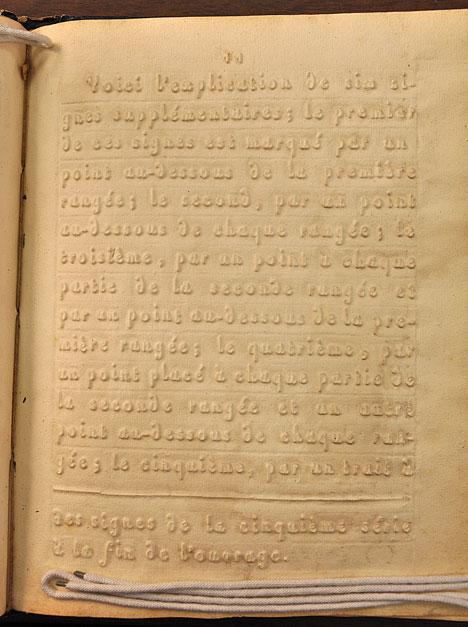 Voici l'explication de six si-
gnes supplémentaires; le premier
de ces signes est marqué par un
point au-dessous de la première
rangée; le second, par un point
au-dessous de chaque rangée; le
troisième, par un point à chaque
partie de la seconde rangée et
par un point au-dessous de la pre-
mière rangée; le quatrième, par
un point placé à chaque partie de
la seconde rangée et un autre
point au-dessous de chaque ran-
gée; le cinquième, par un trait à
des signes de la cinquième série
à la fin de l'ouvrage.